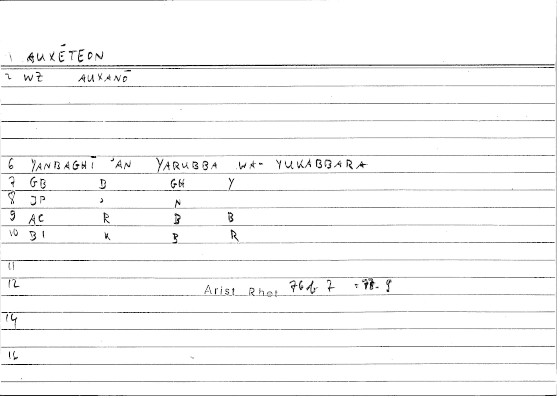 1 AUXĒTEON
2 WZ AUXANŌ
6 YANBAGHĪ 'AN YARUBBA WA- YUKABBARA
7 GB B GH Y
8 JP ' N
9 AC R B B
10 BI K B R
11
12 Arist Rhet 76b 7
14
16